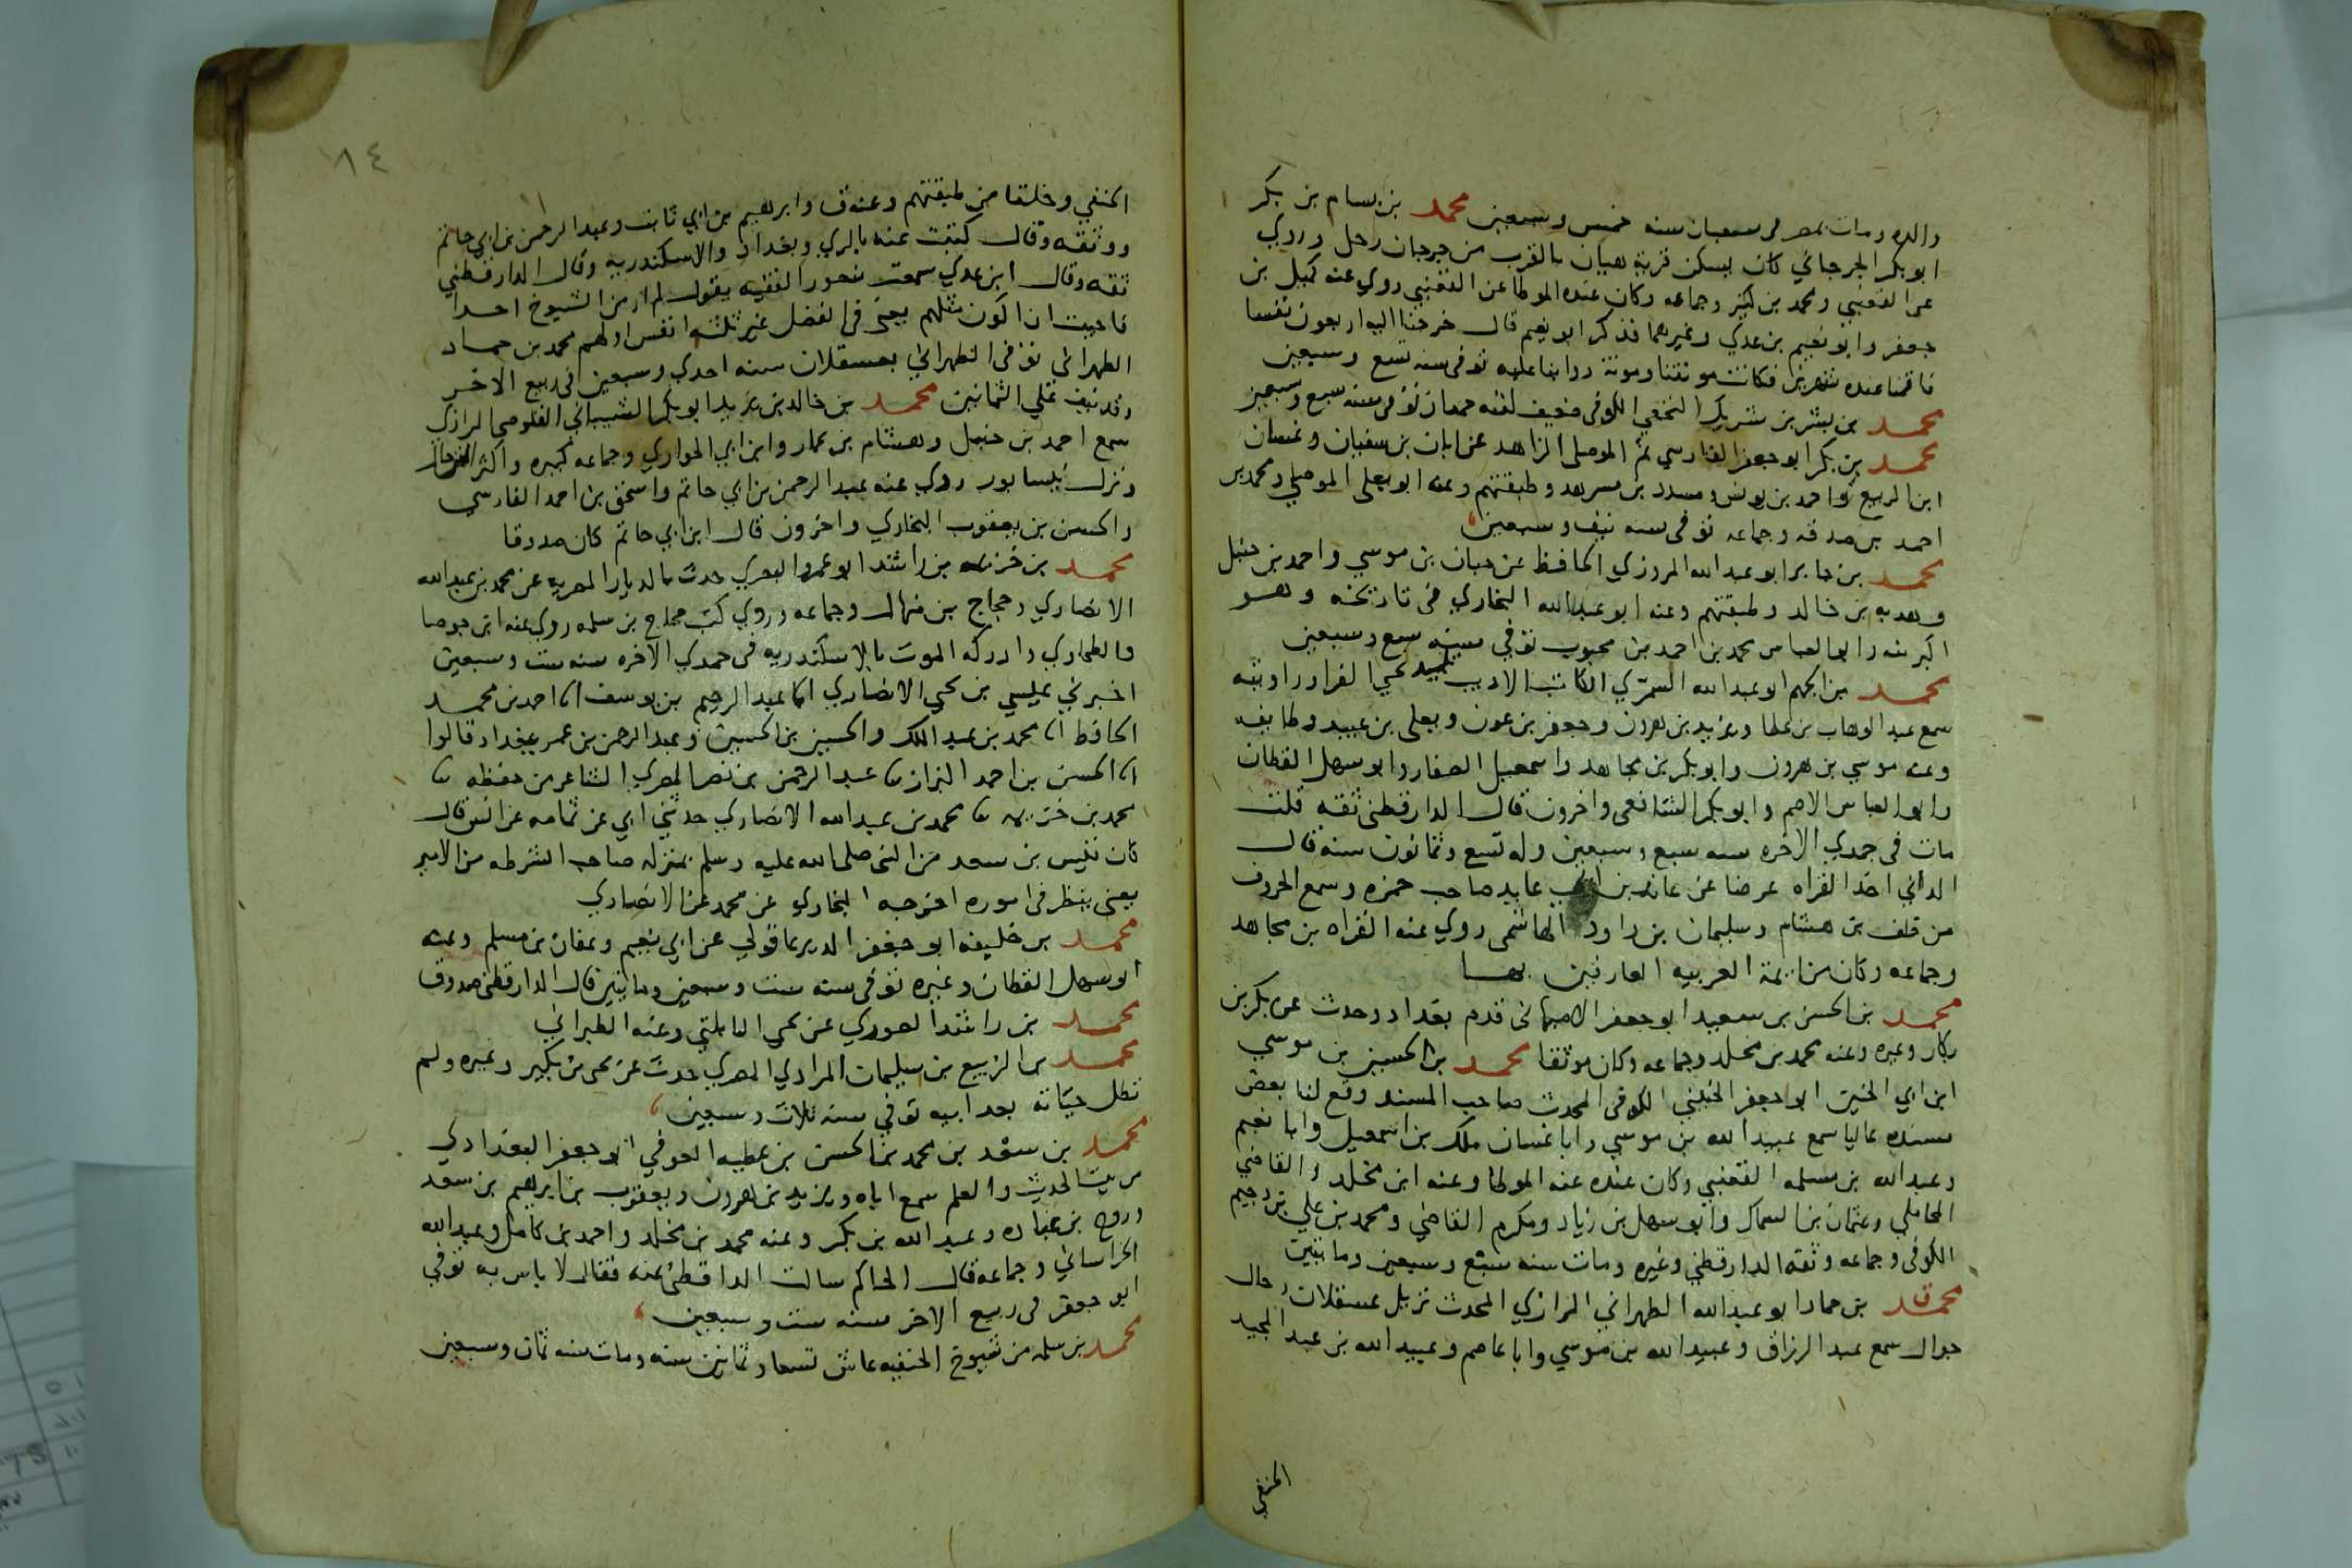 والده ومات بمصر في شعبان سنه خمس وسبعين محمد بن بسام بن بكر
ابو بكر الجرجاني كان يسكن قرية هيان بالقرب من جرجان رحل وروي
عن القعنبي ومحمد بن كثير وجماعه وكان عنده الموطا عن القعنبي روي عنه كميل بن
جعفر وابو نعيم بن عدي وغيرهما فذكر ابو نعيم قال خرجنا اليه اربعون نفسا
فاقمنا عنده شهرين فكانت مونتنا ومونة دوابنا عليه توفي سنه تسع وسبعين
محمد بن بشر بن شريك النخعي الكوفي ضعيف توفي سنه سبع وسبعين
محمد بن بكر ابو جعفر الفارسي ثم الموصلي الزاهد عن ابان بن سفيان وغسان
ابن الربيع واحمد بن يونس ومسدد بن مسرهد وطبقتهم وعنه ابو يعلي الموصلي ومحمد بن
احمد بن صدقه وجماعه توفي سنه نيف وسبعين
محمد بن جابر ابو عبد الله المروزي الحافظ عن حبان بن موسي واحمد بن حنبل
وهدبه بن خالد وطبقتهم وعنه ابو عبد الله البخاري في تاريخه وهو
اكبر منه وابو العباس محمد بن احمد بن محبوب توفي سنه سبع وسبعين
محمد بن الجهم ابو عبد الله السمري الكاتب الاديب تلميذ يحي الفرا وراويته
سمع عبد الوهاب بن عطا ويزيد بن هرون وجعفر بن عون ويعلي بن عبيد وطايفه
وعنه موسي بن هرون وابو بكر بن مجاهد واسمعيل الصفار وابو سهل القطان
وابو العباس الاصم وابو بكر الشافعي واخرون قال الدارقطني ثقه قلت
مات في جمدي الاخره سنه سبع وسبعين وله تسع وثمانون سنه قال
الداني اخذ القراه عرضا عن عائذ بن ابي عايد صاحب حمزه وسمع الحروف
من خلف بن هشام وسليمان بن داود الهاشمي روي عنه القراه بن مجاهد
وجماعه وكان من ايمة العربيه العارفين بها
محمد بن الحسن بن سعيد ابو جعفر الاصبهاني قدم بغداد وحدث عن بكر بن
بكار وغيره وعنه محمد بن مخلد وجماعه وكان موثقا محمد بن الحسين بن موسي
ابن ابي الحنين ابو جعفر الحنيني الكوفي المحدث صاحب المسند وقع لنا بعض
مسنده عاليا سمع عبيد الله بن موسي وابا غسان ملك بن اسمعيل وابا نعيم
وعبد الله بن مسلمه القعنبي وكان عنده عنه الموطا وعنه ابن مخلد والقاضي
المحاملي وعثمان بن السماك وابو سهل بن زياد ومكرم القاضي ومحمد بن علي بن دحيم
الكوفي وجماعه وثقه الدارقطني وغيره ومات سنه سبع وسبعين ومايتين
محمد بن حماد ابو عبد الله الطهراني الرازي المحدث نزيل عسقلان رحال
جوال سمع عبد الرزاق وعبيد الله بن موسي وابا عاصم وعبيد الله بن عبد المجيد
الحنفي
٨٤
الحنفي وخلقا من طبقتهم وعنه ق وابرهيم بن ابي ثابت وعبد الرحمن بن ابي حاتم
ووثقه وقال كتبت عنه بالري وبغداد والاسكندريه وقال الدارقطني
ثقه وقال ابن عدي سمعت منصور الفقيه يقول لم ار من الشيوخ احدا
فاحببت ان اكون مثلهم يعني في الفضل غير ثلثه انفس اولهم محمد بن حماد
الطهراني توفي الطهراني بعسقلان سنه احدي وسبعين في ربيع الاخر
وقد نيف علي الثمانين محمد بن خالد بن يزيد ابو بكر الشيباني القلوصي الرازي
سمع احمد بن حنبل وهشام بن عمار وابن ابي الحواري وجماعه كبيره واكثر الترحال
ونزل نيسابور روي عنه عبد الرحمن بن ابي حاتم واسحق بن احمد الفارسي
والحسن بن يعقوب البخاري واخرون قال ابن ابي حاتم كان صدوقا
محمد بن خزيمه بن راشد ابو عمرو البصري حدث بالديار المصريه عن محمد بن عبد الله
الانصاري وحجاج بن منهال وجماعه وروي كتب حماد بن سلمه روي عنه ابن جوصا
والطحاوي وادركه الموت بالاسكندريه في جمدي الاخره سنه ست وسبعين
اخبرني عيسي بن يحي الانصاري انا عبد الرحيم بن يوسف انا احمد بن محمد
الحافظ انا محمد بن عبد الملك والحسين بن الحسين وعبد الرحمن بن عمر ببغداد قالوا
انا الحسن بن احمد البزاز نا عبد الرحمن بن نصر المصري الشاعر من حفظه نا
محمد بن خزيمه نا محمد بن عبد الله الانصاري حدثني ابي عن ثمامه عن انس قال
كان قيس بن سعد من النبي صلى الله عليه وسلم بمنزله صاحب الشرطه من الامير
يعني ينظر في اموره اخرجه البخاري عن محمد عن الانصاري
محمد بن خليفه ابو جعفر الديرعاقولي عن ابي نعيم وعفان بن مسلم وعنه
ابو سهل القطان وغيره توفي سنه ست وسبعين ومايتين قال الدارقطني صدوق
محمد بن راشد الصوري عن يحي البابلتي وعنه الطبراني
محمد بن الربيع بن سليمان المرادي المصري حدث عن يحي بن بكير وغيره ولم
تطل حياته بعد ابيه توفي سنه ثلاث وسبعين
محمد بن سعد بن محمد بن الحسن بن عطيه العوفي ابو جعفر البغدادي
من بيت الحديث والعلم سمع اباه ويزيد بن هرون ويعقوب بن ابرهيم بن سعد
وروح بن عباده وعبد الله بن بكر وعنه محمد بن مخلد واحمد بن كامل وعبد الله
الخراساني وجماعه قال الحاكم سالت الدارقطني عنه فقال لا باس به توفي
ابو جعفر في ربيع الاخر سنه ست وسبعين
محمد بن سلمه من شيوخ الحنفيه عاش تسعا وثمانين سنه ومات سنه ثمان وسبعين